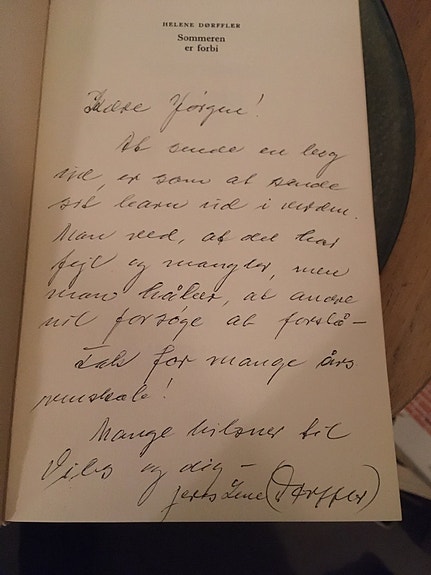 HELENE DØRFFLER
Sommeren
er forbi
Kære Jørgen!
At sende en bog
ud, er som at sende
sit barn ud i verden.
Man ved, at det har
fejl og mangler, men
man håber, at andre
vil forsøge at forstå –
Tak for mange års
venskab!
Mange hilsner til
Vibs og dig –
jeres Lene (Dørffler)